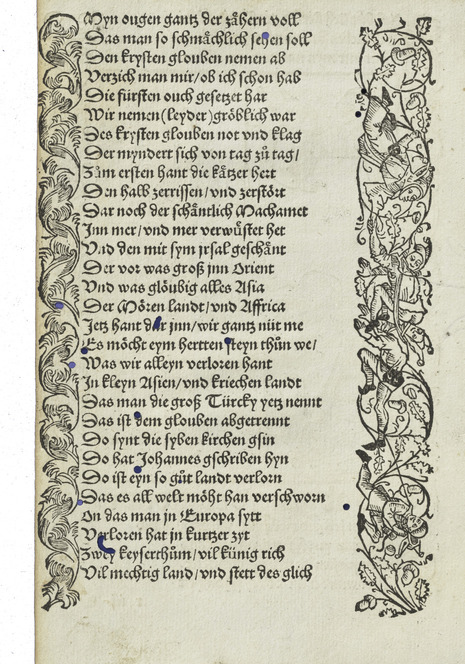 Myn ougen gantz der zåhern voll
Das man so schmåchlich sehen soll
Den krysten glouben nemen ab
Verzich man mir/ob ich schon hab
Die fürsten ouch gesetzet har
Wir nemen(leyder)gröblich war
Des krysten glouben not vnd klag
Der myndert sich von tag zů tag/
Zům ersten hant die kåtzer hert
Den halb zerrissen/vnd zerstört
Dar noch der schåntlich Machamet
Inn mer/vnd mer verwůstet het
Vnd den mit sym jrsal geschånt
Der vor was groß jnn Orient
Vnd was glöubig alles Asia
Der Mören landt/vnd Affrica
Jetz hant dar jnn/wir gantz nüt me
Es möcht eym hertten steyn thůn we/
Was wir alleyn verloren hant
In kleyn Asien/vnd kriechen landt
Das man die groß Türcky yetz nennt
Das ist dem glouben abgetrennt
Do synt die syben kirchen gsin
Do hat Johannes gschriben hyn
Do ist eyn so gůt landt verlorn
Das es all welt möht han verschworn
On das man in Europa sytt
Verloren hat in kurtzer zyt
Zwey keyserthům/vil künig rich
Vil mechtig land/vnd stett des glich